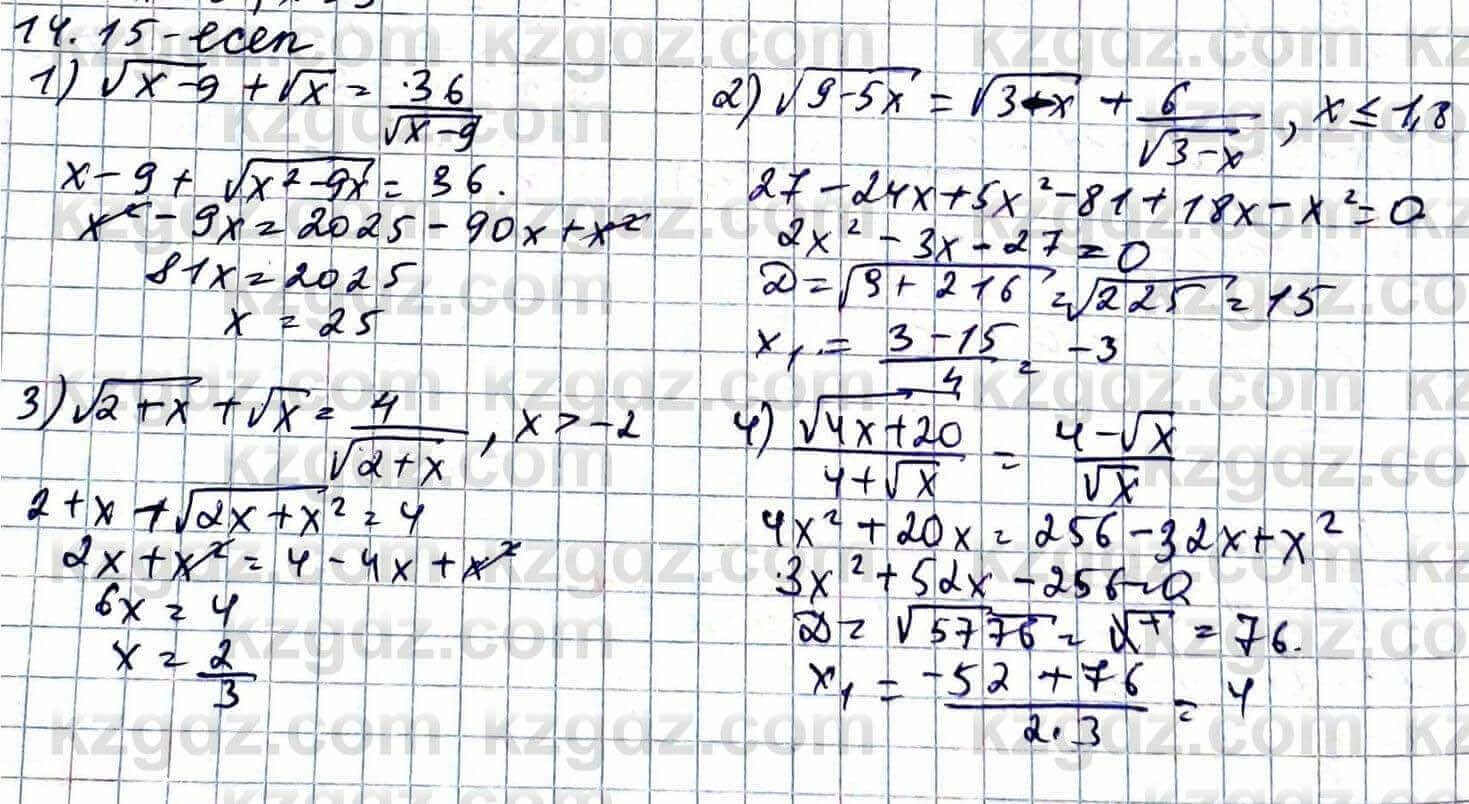 14.15-есеп
1) √(x-9) + √x = 36/√(x-9)
x-9 + √(x²-9x) = 36.
x² - 9x = 2025 - 90x + x²
81x = 2025
x = 25
2) √(9-5x) = √(3-x) + 6/√(3-x), x ≤ 1,8
27 - 24x + 5x² - 81 + 18x - x² = 0
2x² - 3x - 27 = 0
D = √(9 + 216) = √225 = 15
x₁ = (3-15)/4 = -3
3) √(2+x) + √x = 4/√(2+x), x > -2
2+x + √(2x+x²) = 4
2x + x² = 4 - 4x + x²
6x = 4
x = 2/3
4) √(4x+20)/(4+√x) = (4-√x)/√x
4x² + 20x = 256 - 32x + x²
3x² + 52x - 256 = 0
D = √5776 = = 76.
x₁ = (-52 + 76)/(2·3) = 4
kzgdz.com